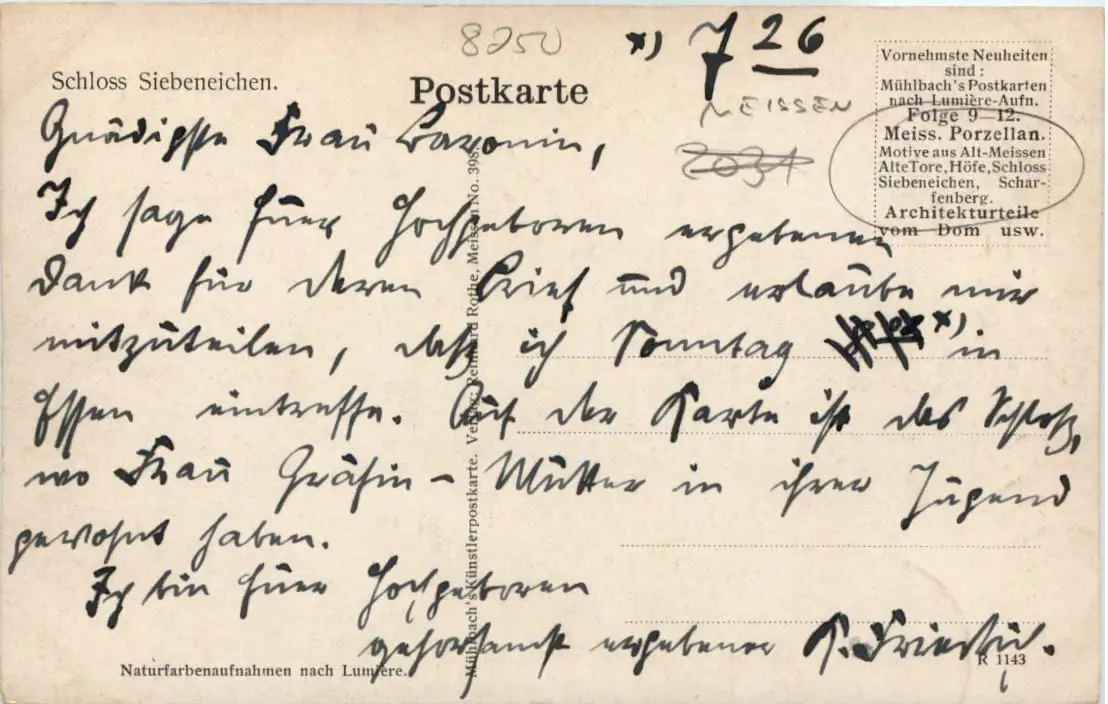 8250
x) 7 26
Schloss Siebeneichen.
Postkarte
MEISSEN
2031
Vornehmste Neuheiten
sind:
Mühlbach's Postkarten
nach Lumière-Aufn.
Folge 9—12.
Meiss. Porzellan.
Motive aus Alt-Meissen
Alte Tore, Höfe, Schloss
Siebeneichen, Schar-
fenberg.
Architekturteile
vom Dom usw.
Gnädigste Frau Baronin,
Ich sage Euer Hochgeboren ergebenen
Dank für deren Brief und erlaube mir
mitzuteilen, daß ich Sonntag x) in
Essen eintreffe. Auf der Karte ist das Schloß,
wo Frau Gräfin-Mutter in ihrer Jugend
gewohnt haben.
Ich bin Euer Hochgeboren
gehorsamst ergebener K.
Mühlbach's Künstlerpostkarte. Verlag: Reinhard Rothe, Meissen No. 398.
Naturfarbenaufnahmen nach Lumière.
R 1143